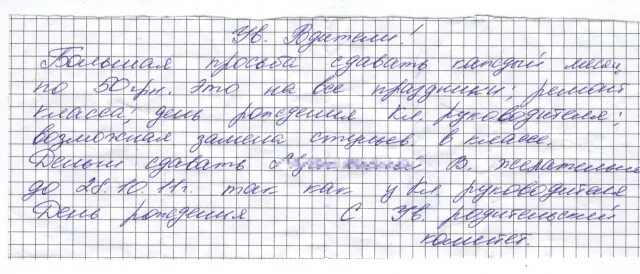 Ув. Вдатели!
Большая просьба сдавать каждый месяц
по 50грн. это на все праздники; ремонт
класса, день рождения Кл. руководителя;
возможная замена стульев. в классе.
Деньги сдавать В. желательно
до 28.10.11г. так как у кл. руководителя
День рождения С Ув. родительский
комитет.